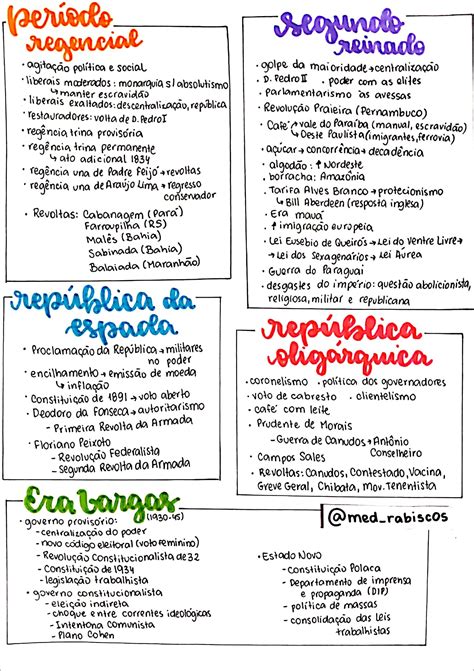 período
regencial
• agitação política e social
• liberais moderados: monarquia s/ absolutismo
↳ manter escravidão
• liberais exaltados: descentralização, república
• restauradores: volta de D. Pedro I
• regência trina provisória
• regência trina permanente
↳ ato adicional 1834
• regência una de Padre Feijó → revoltas
• regência una de Araújo Lima → regresso
conservador
• Revoltas: Cabanagem (Pará)
Farroupilha (RS)
Malês (Bahia)
Sabinada (Bahia)
Balaiada (Maranhão)
segundo
reinado
• golpe da maioridade → centralização
• D. Pedro II • poder com as elites
• parlamentarismo às avessas
• Revolução Praieira (Pernambuco)
• Café ↳ vale do Paraíba (manual, escravidão)
↳ Oeste Paulista (imigrantes, ferrovia)
• açúcar → concorrência → decadência
• algodão: ↑ Nordeste
• borracha: Amazônia
• Tarifa Alves Branco → protecionismo
↳ Bill Aberdeen (resposta inglesa)
• Era mauá
• ↑ imigração europeia
• Lei Eusebio de Queirós → Lei do Ventre Livre →
↳ Lei dos Sexagenários → Lei Áurea
• Guerra do Paraguai
• desgastes do império: questão abolicionista,
religiosa, militar e republicana
república da
espada
• Proclamação da República → militares
no poder
• encilhamento → emissão de moeda
↳ inflação
• Constituição de 1891 → voto aberto
• Deodoro da Fonseca → autoritarismo
- Primeira Revolta da Armada
• Floriano Peixoto
- Revolução Federalista
- segunda Revolta da Armada
república
oligárquica
• coronelismo • política dos governadores
• voto de cabresto • clientelismo
• café com leite
• Prudente de Morais
- Guerra de Canudos → Antônio
Conselheiro
• Campos Sales
• Revoltas: Canudos, Contestado, Vacina,
Greve Geral, Chibata, Mov. Tenentista
Era Vargas
(1930-45)
@med_rabiscos
• governo provisório:
- centralização do poder
- novo código eleitoral (voto feminino)
- Revolução Constitucionalista de 32
- Constituição de 1934
- legislação trabalhista
• governo constitucionalista
- eleição indireta
- choque entre correntes ideológicas
- Intentona Comunista
- Plano Cohen
• Estado Novo
- constituição Polaca
- Departamento de imprensa
e propaganda (DIP)
- política de massas
- consolidação das Leis
trabalhistas